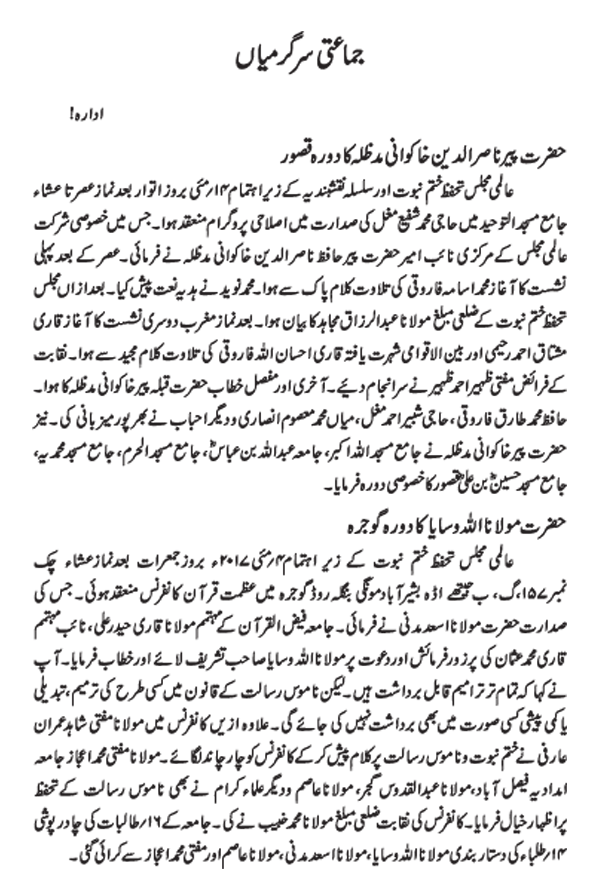 جماعتی سرگرمیاں
ادارہ!
حضرت پیر ناصر الدین خاکوانی مدظلہ کا دورہ قصور
عالمی مجلس تحفظ ختم نبوت اور سلسلہ نقشبندیہ کے زیر اہتمام ۱۴؍مئی بروز اتوار بعد نماز عصر تا عشاء
جامع مسجد التوحید میں حاجی محمد شفیع مغل کی صدارت میں اصلاحی پروگرام منعقد ہوا۔ جس میں خصوصی شرکت
عالمی مجلس کے مرکزی نائب امیر حضرت پیر حافظ ناصر الدین خاکوانی مدظلہ نے فرمائی۔ عصر کے بعد پہلی
نشست کا آغاز محمد اسامہ فاروقی کی تلاوت کلام پاک سے ہوا۔ محمد نوید نے ہدیہ نعت پیش کیا۔ بعد ازاں مجلس
تحفظ ختم نبوت کے ضلعی مبلغ مولانا عبدالرزاق مجاہد کا بیان ہوا۔ بعد نماز مغرب دوسری نشست کا آغاز قاری
مشتاق احمد رحیمی اور بین الاقوامی شہرت یافتہ قاری احسان اللہ فاروقی کی تلاوت کلام مجید سے ہوا۔ نقابت
کے فرائض مفتی ظہیر احمد ظہیر نے سرانجام دیئے۔ آخری اور مفصل خطاب حضرت قبلہ پیر خاکوانی مدظلہ کا ہوا۔
حافظ محمد طارق فاروقی، حاجی شبیر احمد مغل، میاں محمد معصوم انصاری و دیگر احباب نے بھرپور میزبانی کی۔ نیز
حضرت پیر خاکوانی مدظلہ نے جامع مسجد اللہ اکبر، جامعہ عبداللہ بن عباسؓ، جامع مسجد الحرم، جامع مسجد محمدیہ،
جامع مسجد حسینؓ بن علیؓ قصور کا خصوصی دورہ فرمایا۔
حضرت مولانا اللہ وسایا کا دورہ گوجرہ
عالمی مجلس تحفظ ختم نبوت کے زیر اہتمام ۴؍مئی ۲۰۱۷ء بروز جمعرات بعد نماز عشاء چک
نمبر ۱۵۷، گ، ب جیتھے اڈہ بشیر آباد مونگی بنگلہ روڈ گوجرہ میں عظمت قرآن کانفرنس منعقد ہوئی۔ جس کی
صدارت حضرت مولانا اسعد مدنی نے فرمائی۔ جامعہ فیض القرآن کے مہتمم مولانا قاری حیدر علی، نائب مہتمم
قاری محمد عثمان کی پرزور فرمائش اور دعوت پر مولانا اللہ وسایا صاحب تشریف لائے اور خطاب فرمایا۔ آپ
نے کہا کہ تمام تر ترامیم قابل برداشت ہیں۔ لیکن ناموس رسالت کے قانون میں کسی طرح کی ترمیم، تبدیلی
یا کمی پیشی کسی صورت میں بھی برداشت نہیں کی جائے گی۔ علاوہ ازیں کانفرنس میں مولانا مفتی شاہد عمران
عارفی نے ختم نبوت و ناموس رسالت پر کلام پیش کر کے کانفرنس کو چار چاند لگائے۔ مولانا مفتی محمد اعجاز جامعہ
امدادیہ فیصل آباد، مولانا عبدالقدوس گجر، مولانا عاصم و دیگر علماء کرام نے بھی ناموس رسالت کے تحفظ
پر اظہار خیال فرمایا۔ کانفرنس کی نقابت ضلعی مبلغ مولانا محمد خبیب نے کی۔ جامعہ کے ۱۶؍طالبات کی چادر پوشی
۱۴؍طلباء کی دستار بندی مولانا اللہ وسایا، مولانا اسعد مدنی، مولانا عاصم اور مفتی محمد اعجاز سے کرائی گئی۔